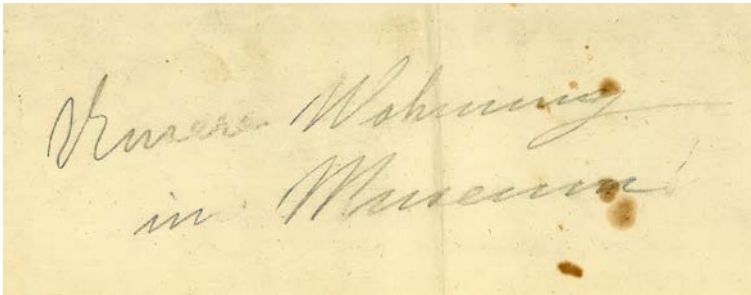 Unsere Wohnung
in Museum